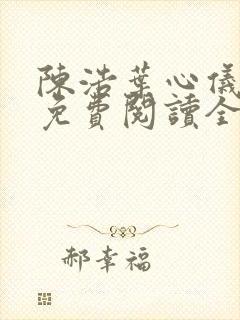 陳浩葉心儀
免費閱讀全
郝幸福